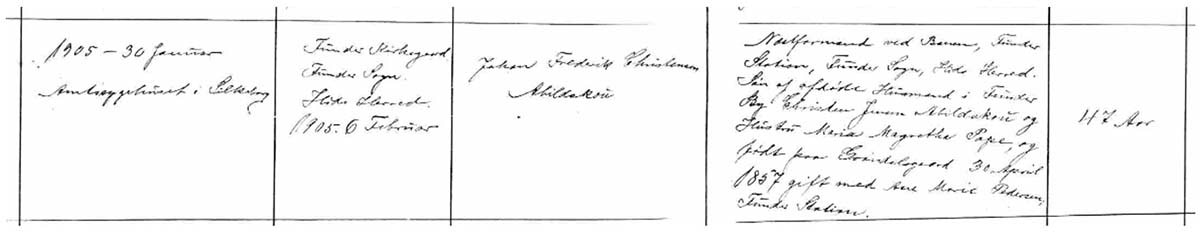 1905 – 30 Januar
Amtssygehuset i Silkeborg
Funder Kirkegaard
Funder Sogn.
Hids Herred.
1905. 6 Februar
Johan Frederik Christensen
Abildskou
Næstformand ved Banen, Funder
Station, Funder Sogn, Hids Herred.
Søn af afdøde Husmand i Funder
By Christen Jensen Abildskou og
Hustru Maria Magrethe Pape, og
født paa 30 April
1857 gift med Ane Marie Pedersen,
Funder Station.
47 Aar